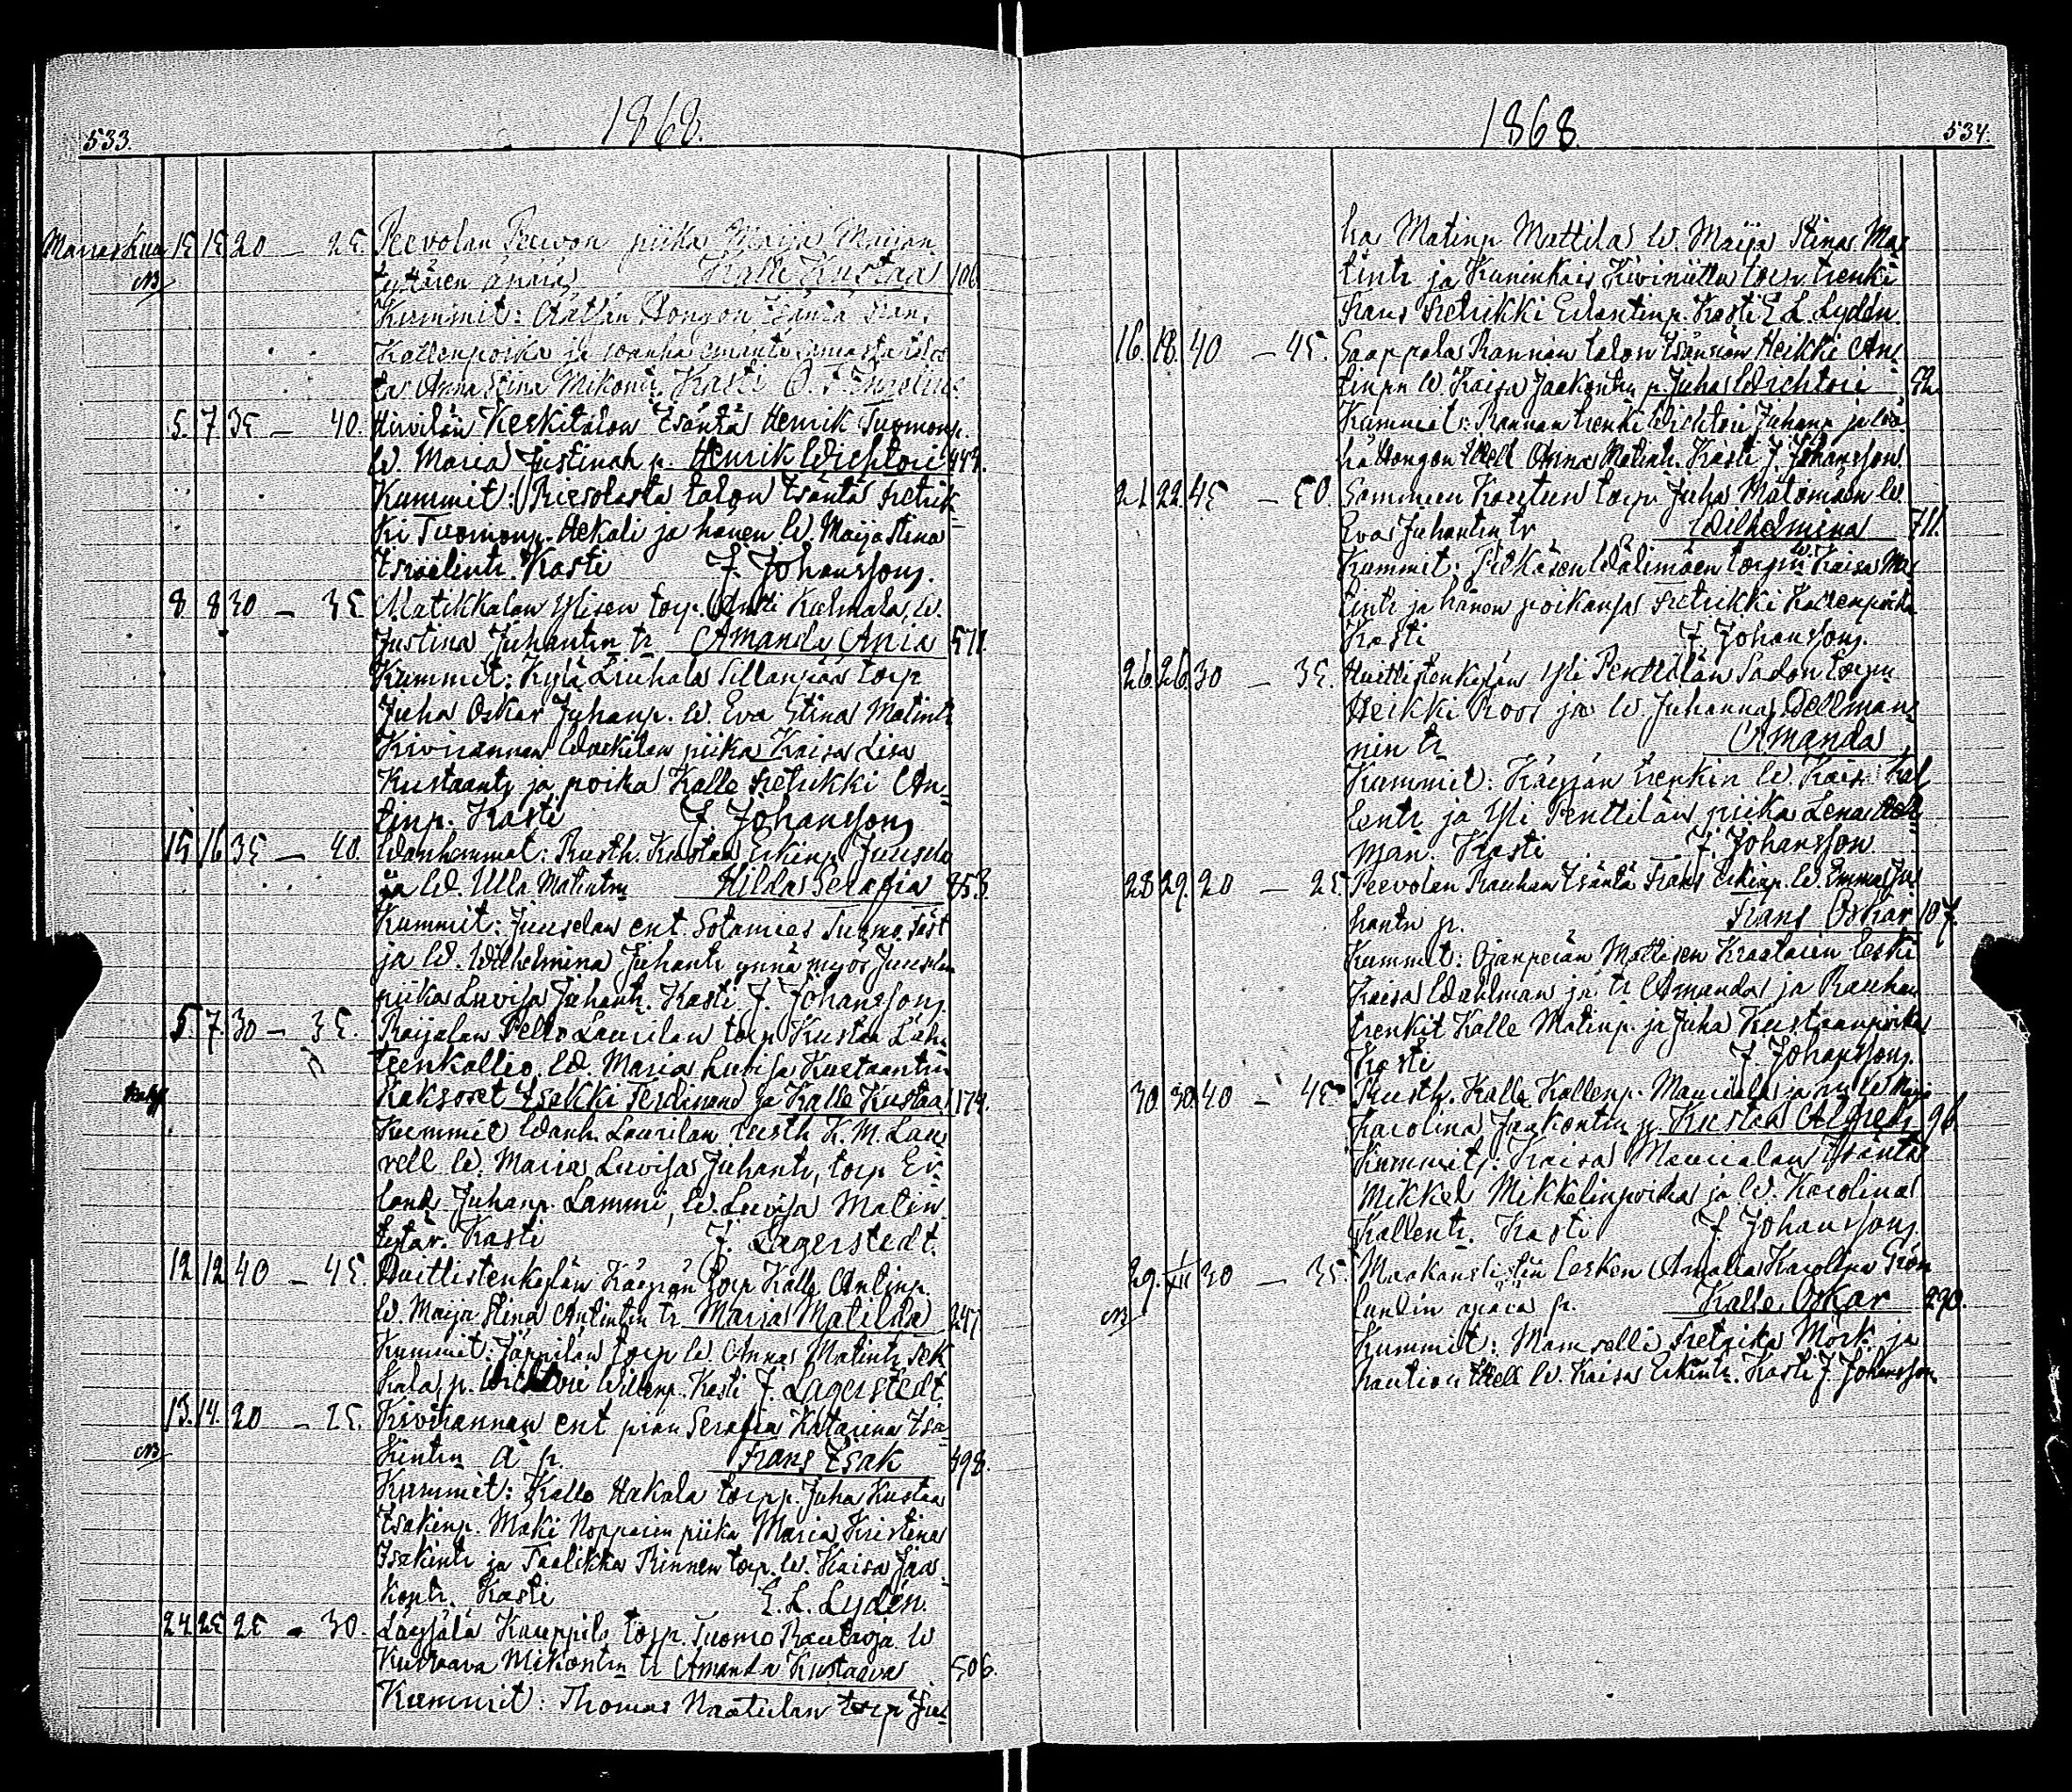 533.
1868.
Marraskuu 15 15 20 — 25. Peevolan Peevon piika Maija Maijan
NB tyttären äpärä Kalle Kustaa 106
Kummit: Hongon Isäntä Frans
Kallenpoika ja wanha emäntä samasta talos
ta Anna Stina Mikontr. Kasti
5. 7 35 — 40. Hirvilän Keskitalon Isäntä Henrik Tuomonp.
W. Maria Justinah p. Henrik Wichtori 444.
Kummit: Riesolasta talon Isäntä Fretrik
ki Tuomonp. Hekali ja hänen W. Maija Stina
Israelintr. Kasti J. Johansson.
8 8 30 — 35 Matikkalan Ylisen torp. Antti Kulmala, W.
Justina Juhantin tr Amanda Ania 571.
Kummit: Kylä Liuhala Sillanpää torp
Juha Oskar Juhanp. W. Eva Stina Matintr
Kivirannan piika Kaisa Lisa
Kustaantr ja poika Kalle Fretrikki An-
tinp. Kasti J. Johansson
15 16 35 — 40. Wanhemmat: Rusth. Kustaa Erkinp. Juusela
ja W. Ulla Matintm Hilda Serafia 353.
Kummit: Juuselan ent. Sotamies Tuomo Fäst
ja W. Wilhelmina Juhantr ynnä myös Juuselan
piika Luvisa Juhantr. Kasti J. Johansson.
5. 7. 30 — 35. Raijalan Pello Laurilan torp Kustaa Läh-
teenkallio, W. Maria Luvisa Kustaantin
Kaksoset Isakki Ferdinand ja Kalle Kustaa 174.
Kummit Wanh. Laurilan rusth K. M. Lau-
rell W. Maria Luvisa Juhantr, torp Er-
land Juhanp. Lammi, W. Luvisa Matin
tytär. Kasti J. Lagerstedt.
12 12 40 — 45. Huittistenkylän Käepän torp Kalle Antinp.
W. Maija Stina Antintin tr Maria Matilda 247
Kummit: Jäppilän torp W. Anna Matintr Sek
kala, p. Wichtori Willenp. Kasti J. Lagerstedt
13. 14. 20 — 25. Kivirannan ent pian Serafia Katarina Isa-
NB kintin Ä p. Frans Isak 498.
Kummit: Kallo Hakala torpp. Juha Kustaa
Isakinp. Mäki Nopparin piika Maria Kristina
Isakintr ja Taalikka Rinnen torp. W. Kaisa Jaa-
kontr. Kasti E. L. Lydén.
24 25 25 — 30. Löysälä Kauppila torp. Tuomo Rautaoja W
Kustaava Mikontin tr Amanda Kustaava 506.
Kummit: Thomas Naatulan torp Ju-
1868.
534.
ha Matinp Mattila W. Maija Stina Ma-
tintr ja Kuninkais Kiviniitta torp trenki
Frans Fretrikki Erlantinp. Kasti E L. Lydén.
16. 18. 40 — 45. Saappala Rannan talon Isännän Heikki An-
tinpn W. Kaisa Jaakontin p. Juha Wichtori 52.
Kummit: Rannan trenki Wichtori Juhanp ja Wä-
hä Hongon Anna Matintr. Kasti J. Johansson.
21 22. 45 — 50. Sammun Kourtun torp. Juha Matomäen W.
Eva Juhantin tr Wilhelmina 711.
Kummit: Pirkäsen Wälimäen torpin W. Kaisa Ma-
tintr ja hänen poikansa Fretrikki Kallenpoika
Kasti J. Johansson.
26. 26. 30 — 35. Huittistenkylän Yli Penttilän Sadon torpn
Heikki Roos ja W. Juhanna Dellman-
nin tr Amanda
Kummit: Käepän trenkin W. Kaisa Kal
lentr ja Yli Penttilän piika Lena Dell
man. Kasti J. Johansson.
28 29. 20 — 25 Peevolan Rauhan Isäntä Frans Erkinp. W. Emma Ju-
hantn p. Frans Oskar 107.
Kummit: Ojanperän Mattisen Kraatarin leski
Kaisa Wahlman ja tr Amanda ja Rauhan
trenkit Kalle Matinp. ja Juha Kustaanpoika
Kasti J. Johansson.
30. 30. 40 — 45 Rusth. Kalle Kallenp. Mauriala ja W Maja
Karolina Jaakontin p. Kustaa Alfred 96.
Kummit: Kaisa Maurialan Isäntä
Mikkel Mikkelinpoika ja W. Karolina
Kallentr. Kasti J. Johansson.
29. XII 30 — 35. Maakanslistin Lesken Amalia Karolina Grön
NB lundin äpärä p. Kalle Oskar 290.
Kummit: Mamselli Fretrika Mörk ja
W. Kaisa Erkintr. Kasti J. Johansson